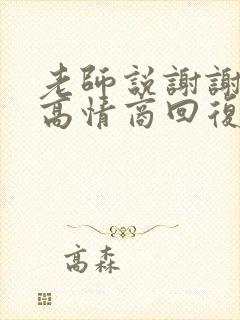 老師說謝謝
高情商回復
高森